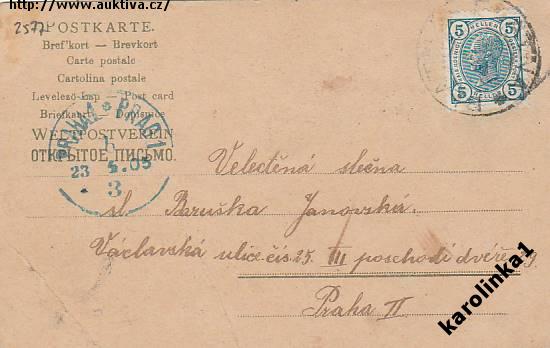 zdroj: www.auktiva.cz/
2577
POSTKARTE.
Bref'kort - Brevkort
Carte postale
Cartolina postale
Levelező-lap - Post card
Briefkaart - Dopisnice
WELTPOSTVEREIN
ОТКРЫТОЕ ПИСЬМО.
PRAHA 1 * PRAG 1
23 5.05
* 3 *
5 HELLER 5
5 5
Veletěná slečna
sl. Bruška Janovská.
Václavská ulice čís 25. III poschodí dvéře 9
Praha II
karolinka1